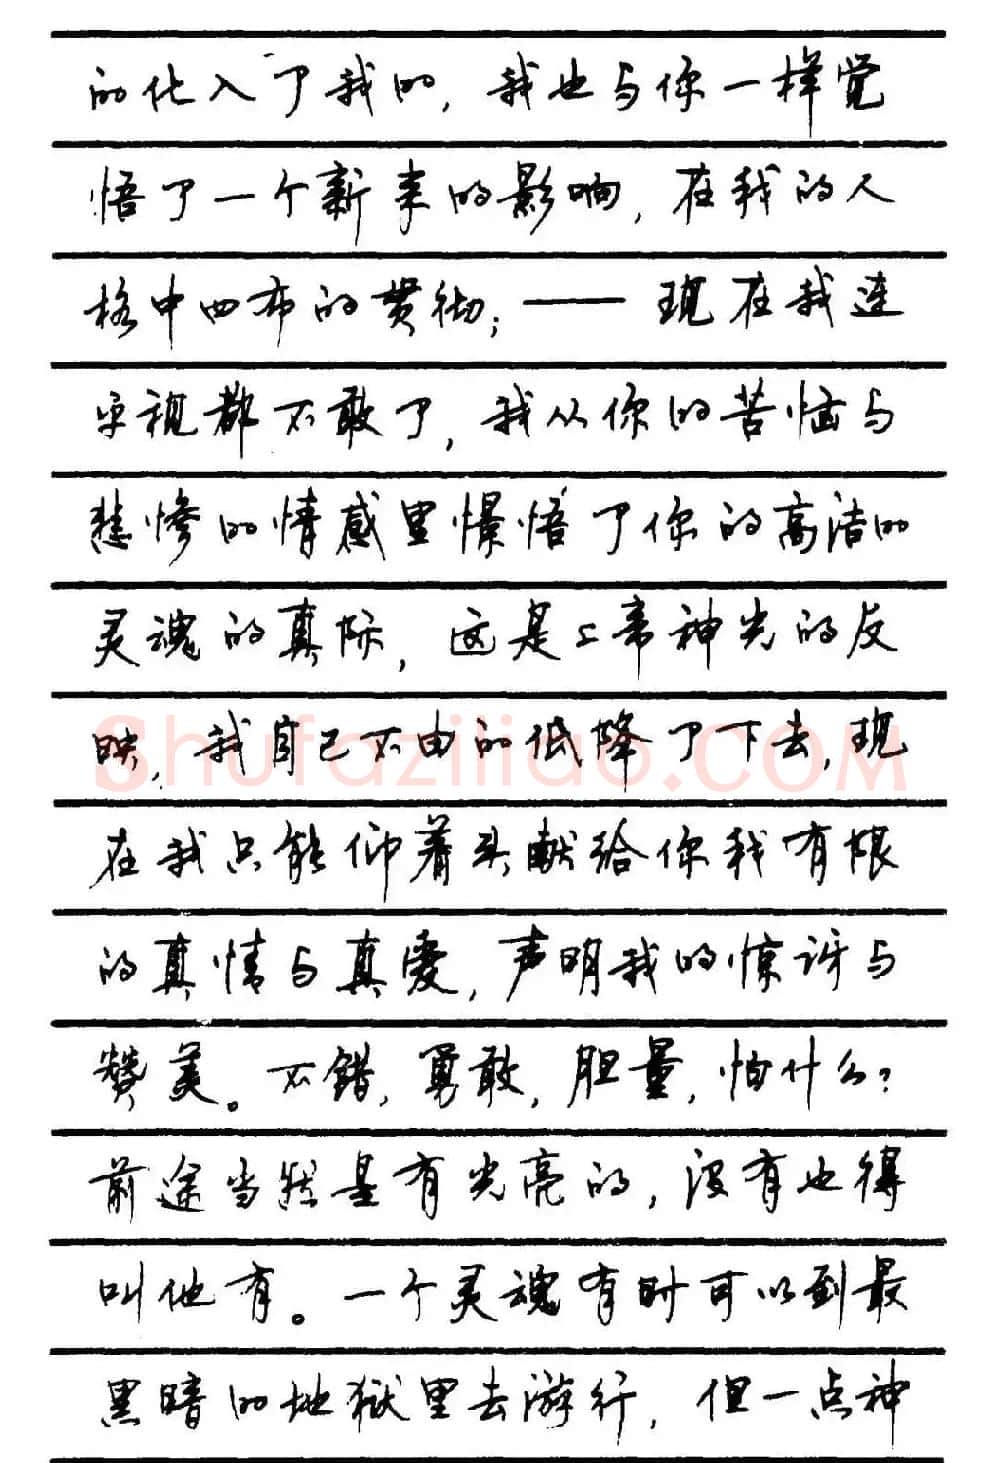 的化入了我的，我也与你一样觉
悟了一个新来的影响，在我的人
格中四布的贯彻；——现在我连
平视都不敢了，我从你的苦恼与
悲惨的情感里憬悟了你的高洁的
灵魂的真际，这是上帝神光的反
映，我自己不由的低降了下去，现
在我只能仰着头献给你我有限
的真情与真爱，声明我的惊讶与
赞美。不错，勇敢，胆量，怕什么？
前途当然是有光亮的，没有也得
叫他有。一个灵魂有时可以到最
黑暗的地狱里去游行，但一点神
Shufaziliao.COM